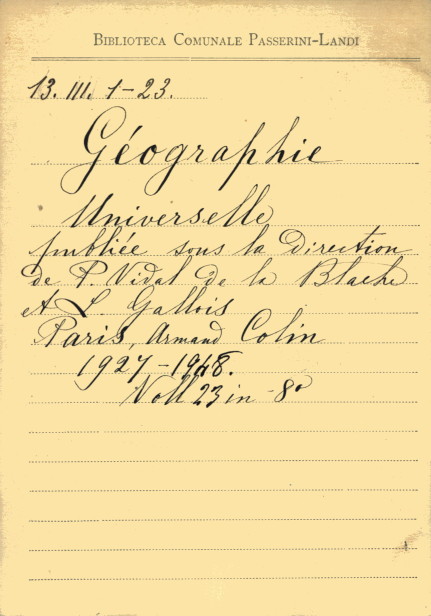 BIBLIOTECA COMUNALE PASSERINI-LANDI
13. III. 1-23.
Géographie
Universelle
publiée sous la direction
de P. Vidal de la Blache
et L. Gallois
Paris, Armand Colin
1927-1948.
Voll 23 in-8º